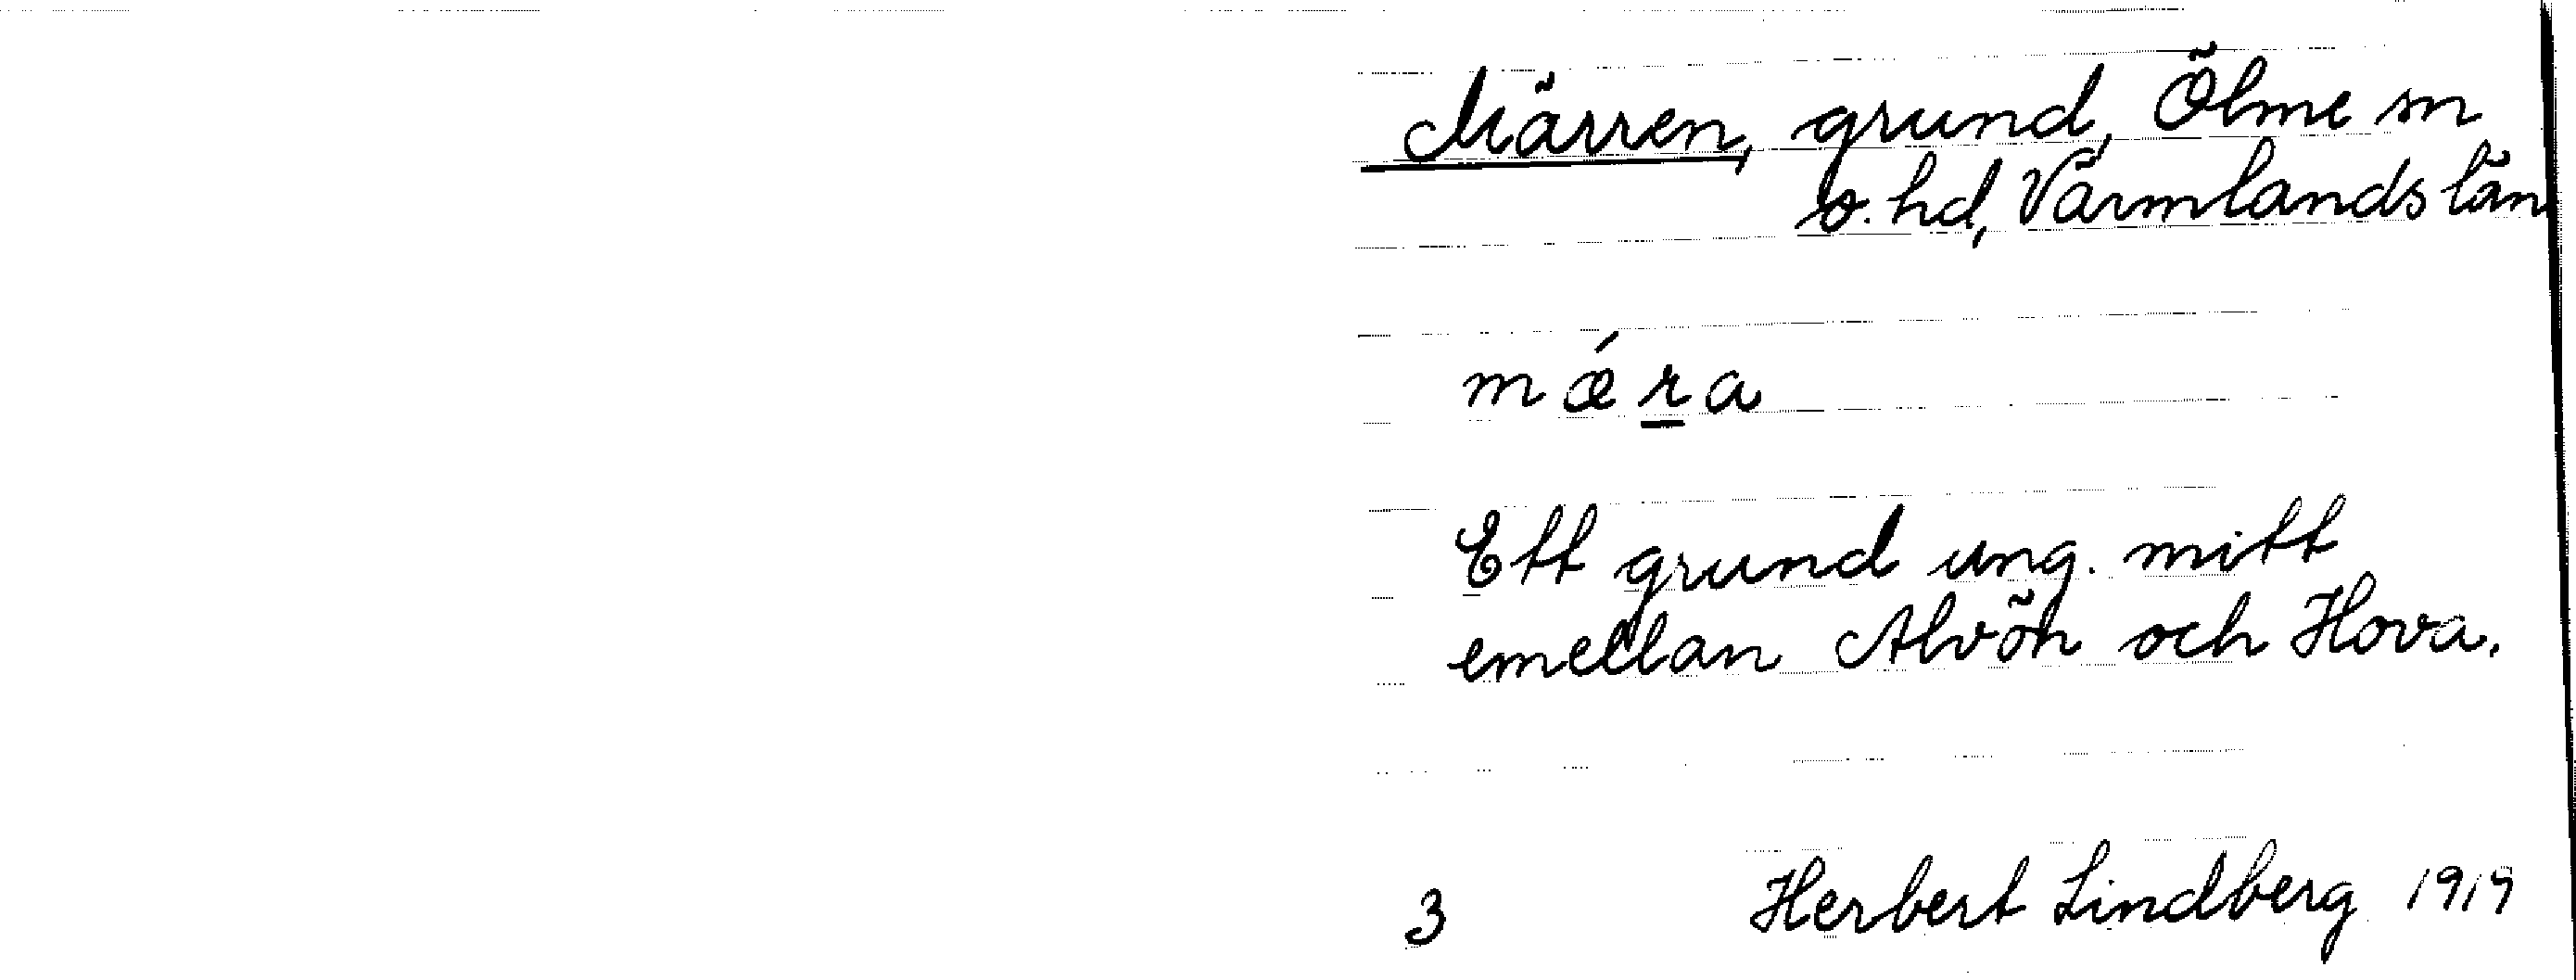 Märren, grund, Ölme sn
o. hd, Värmlands län
mǽra
Ett grund ung. mitt
emellan Alvön och Hova.
3 Herbert Lindberg 1919